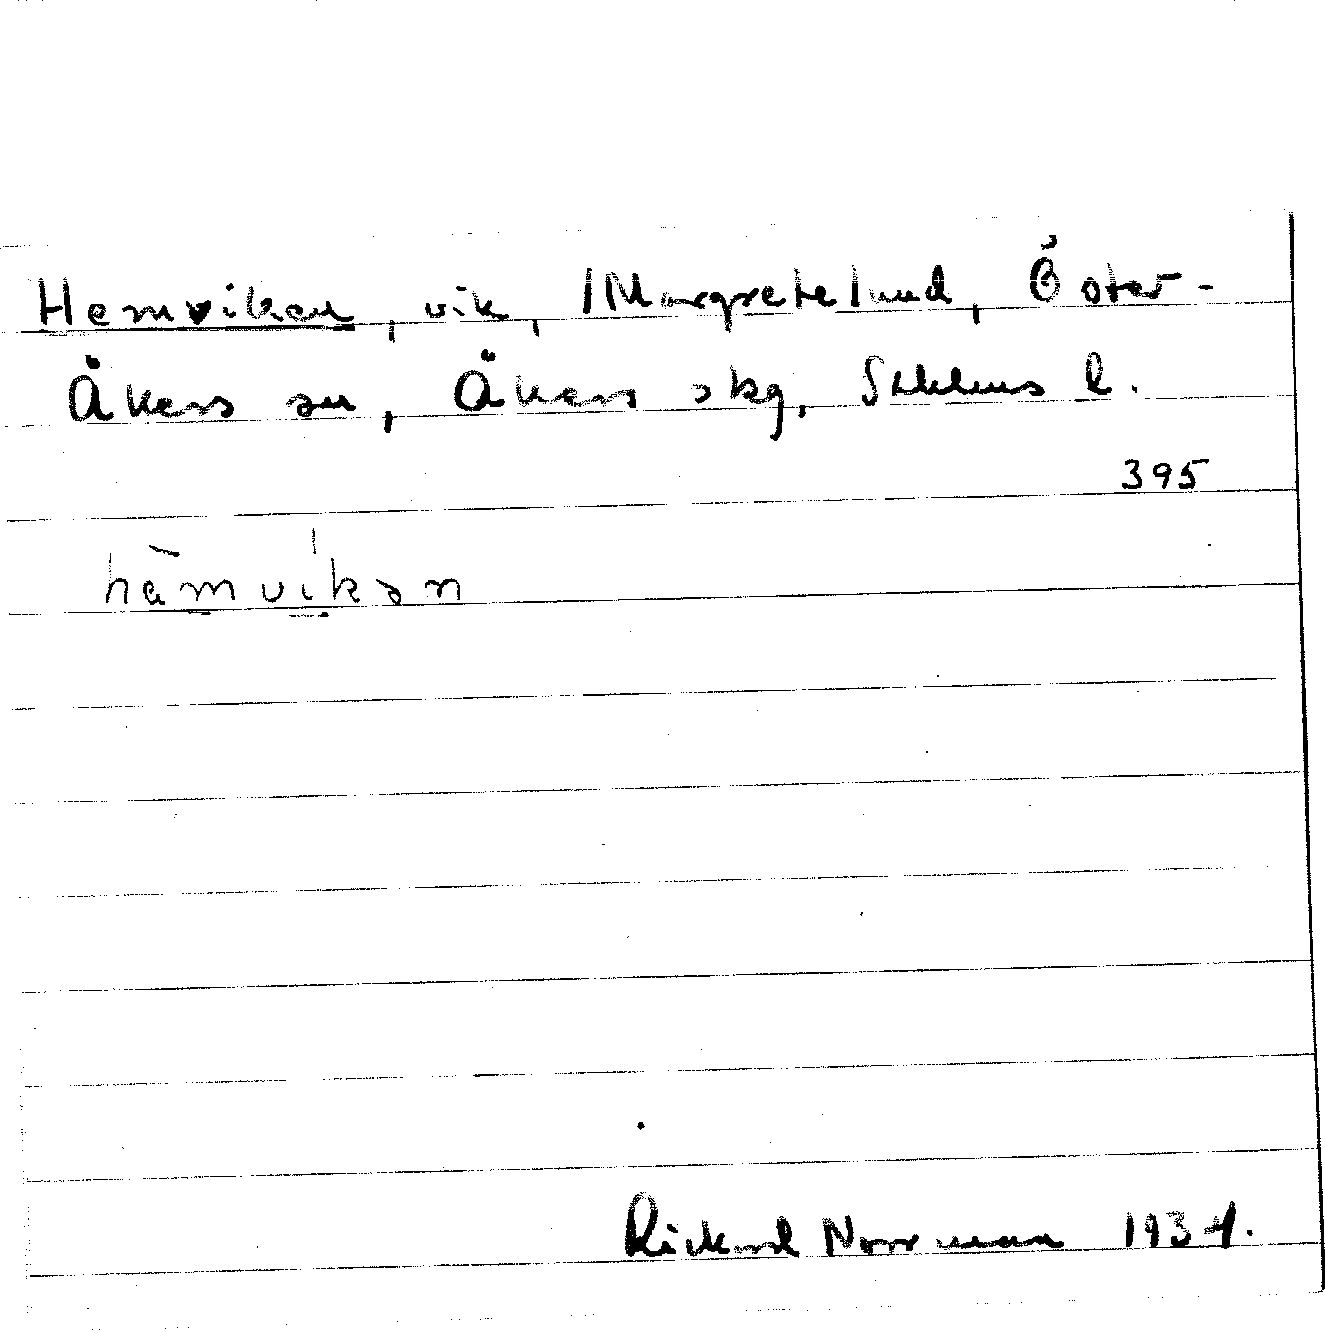 Hemviken, vik, Margretelund, Öster-
Åkers sn, Åkers skg, Sthlms l.
395
hàmvikən
Rickard Norrman 1934.